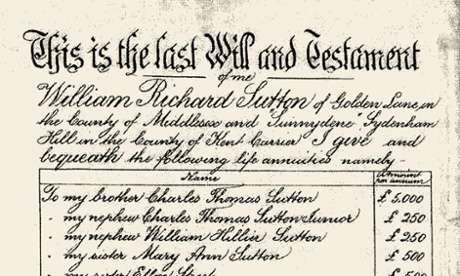 This is the last Will and Testament
of me
William Richard Sutton of Golden Lane in
the County of Middlesex and "Sunnydene" Sydenham
Hill in the County of Kent Carrier I give and
bequeath the following life annuities namely -
Name Amount per annum
To my brother Charles Thomas Sutton £5,000
" my nephew Charles Thomas Sutton Junior £250
" my nephew William Hillier Sutton £250
" my sister Mary Ann Sutton £500
" my sister £500